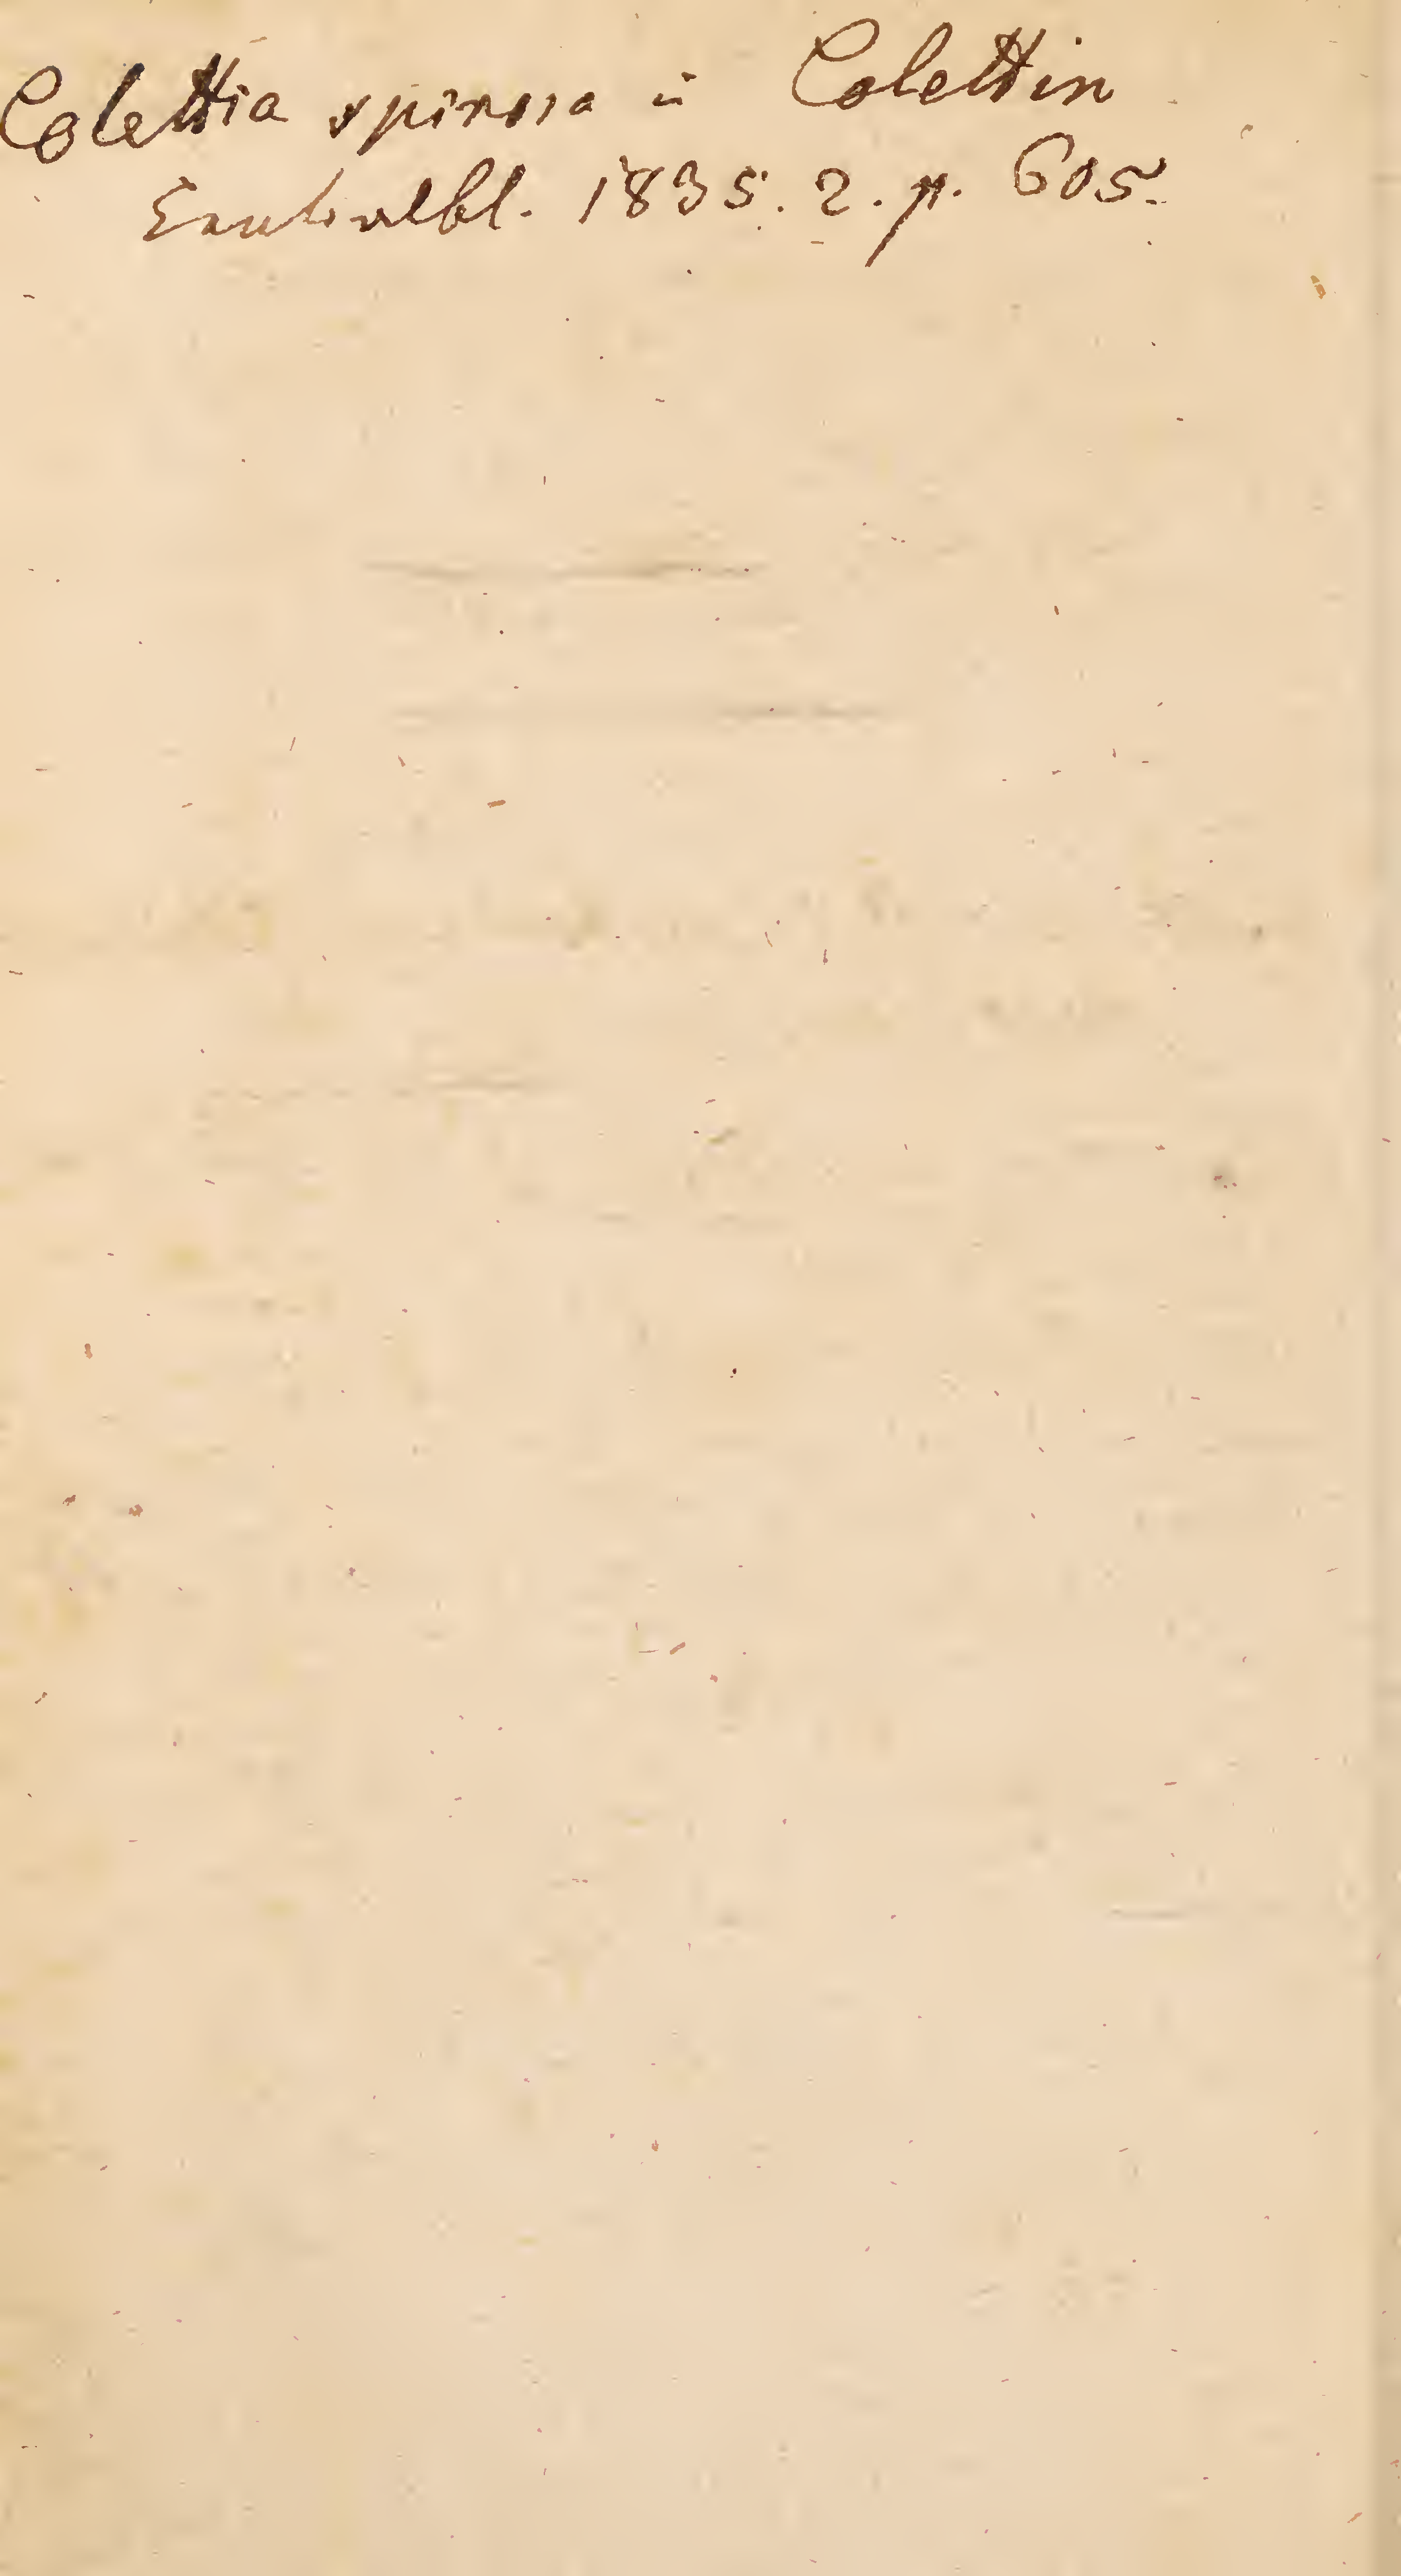 Colettia spinosa u Colettin
Centralbl. 1835. 2. p. 605.